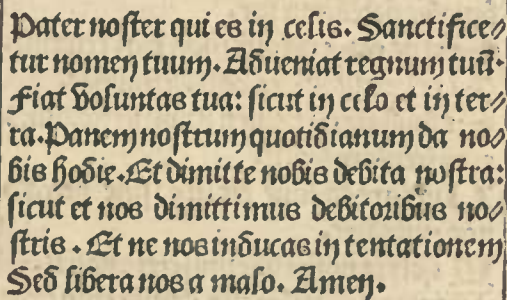 Pater noſter qui es in celis. Sanctifice⸗
tur nomen tuum. Adueniat regnum tuū.
Fiat voluntas tua: ſicut in celo et in ter⸗
ra. Panem noſtrum quotidianum da no⸗
bis hodie. Et dimitte nobis debita noſtra:
ſicut et nos dimittimus debitoribus no⸗
ſtris. Et ne nos inducas in tentationem
Sed libera nos a malo. Amen.